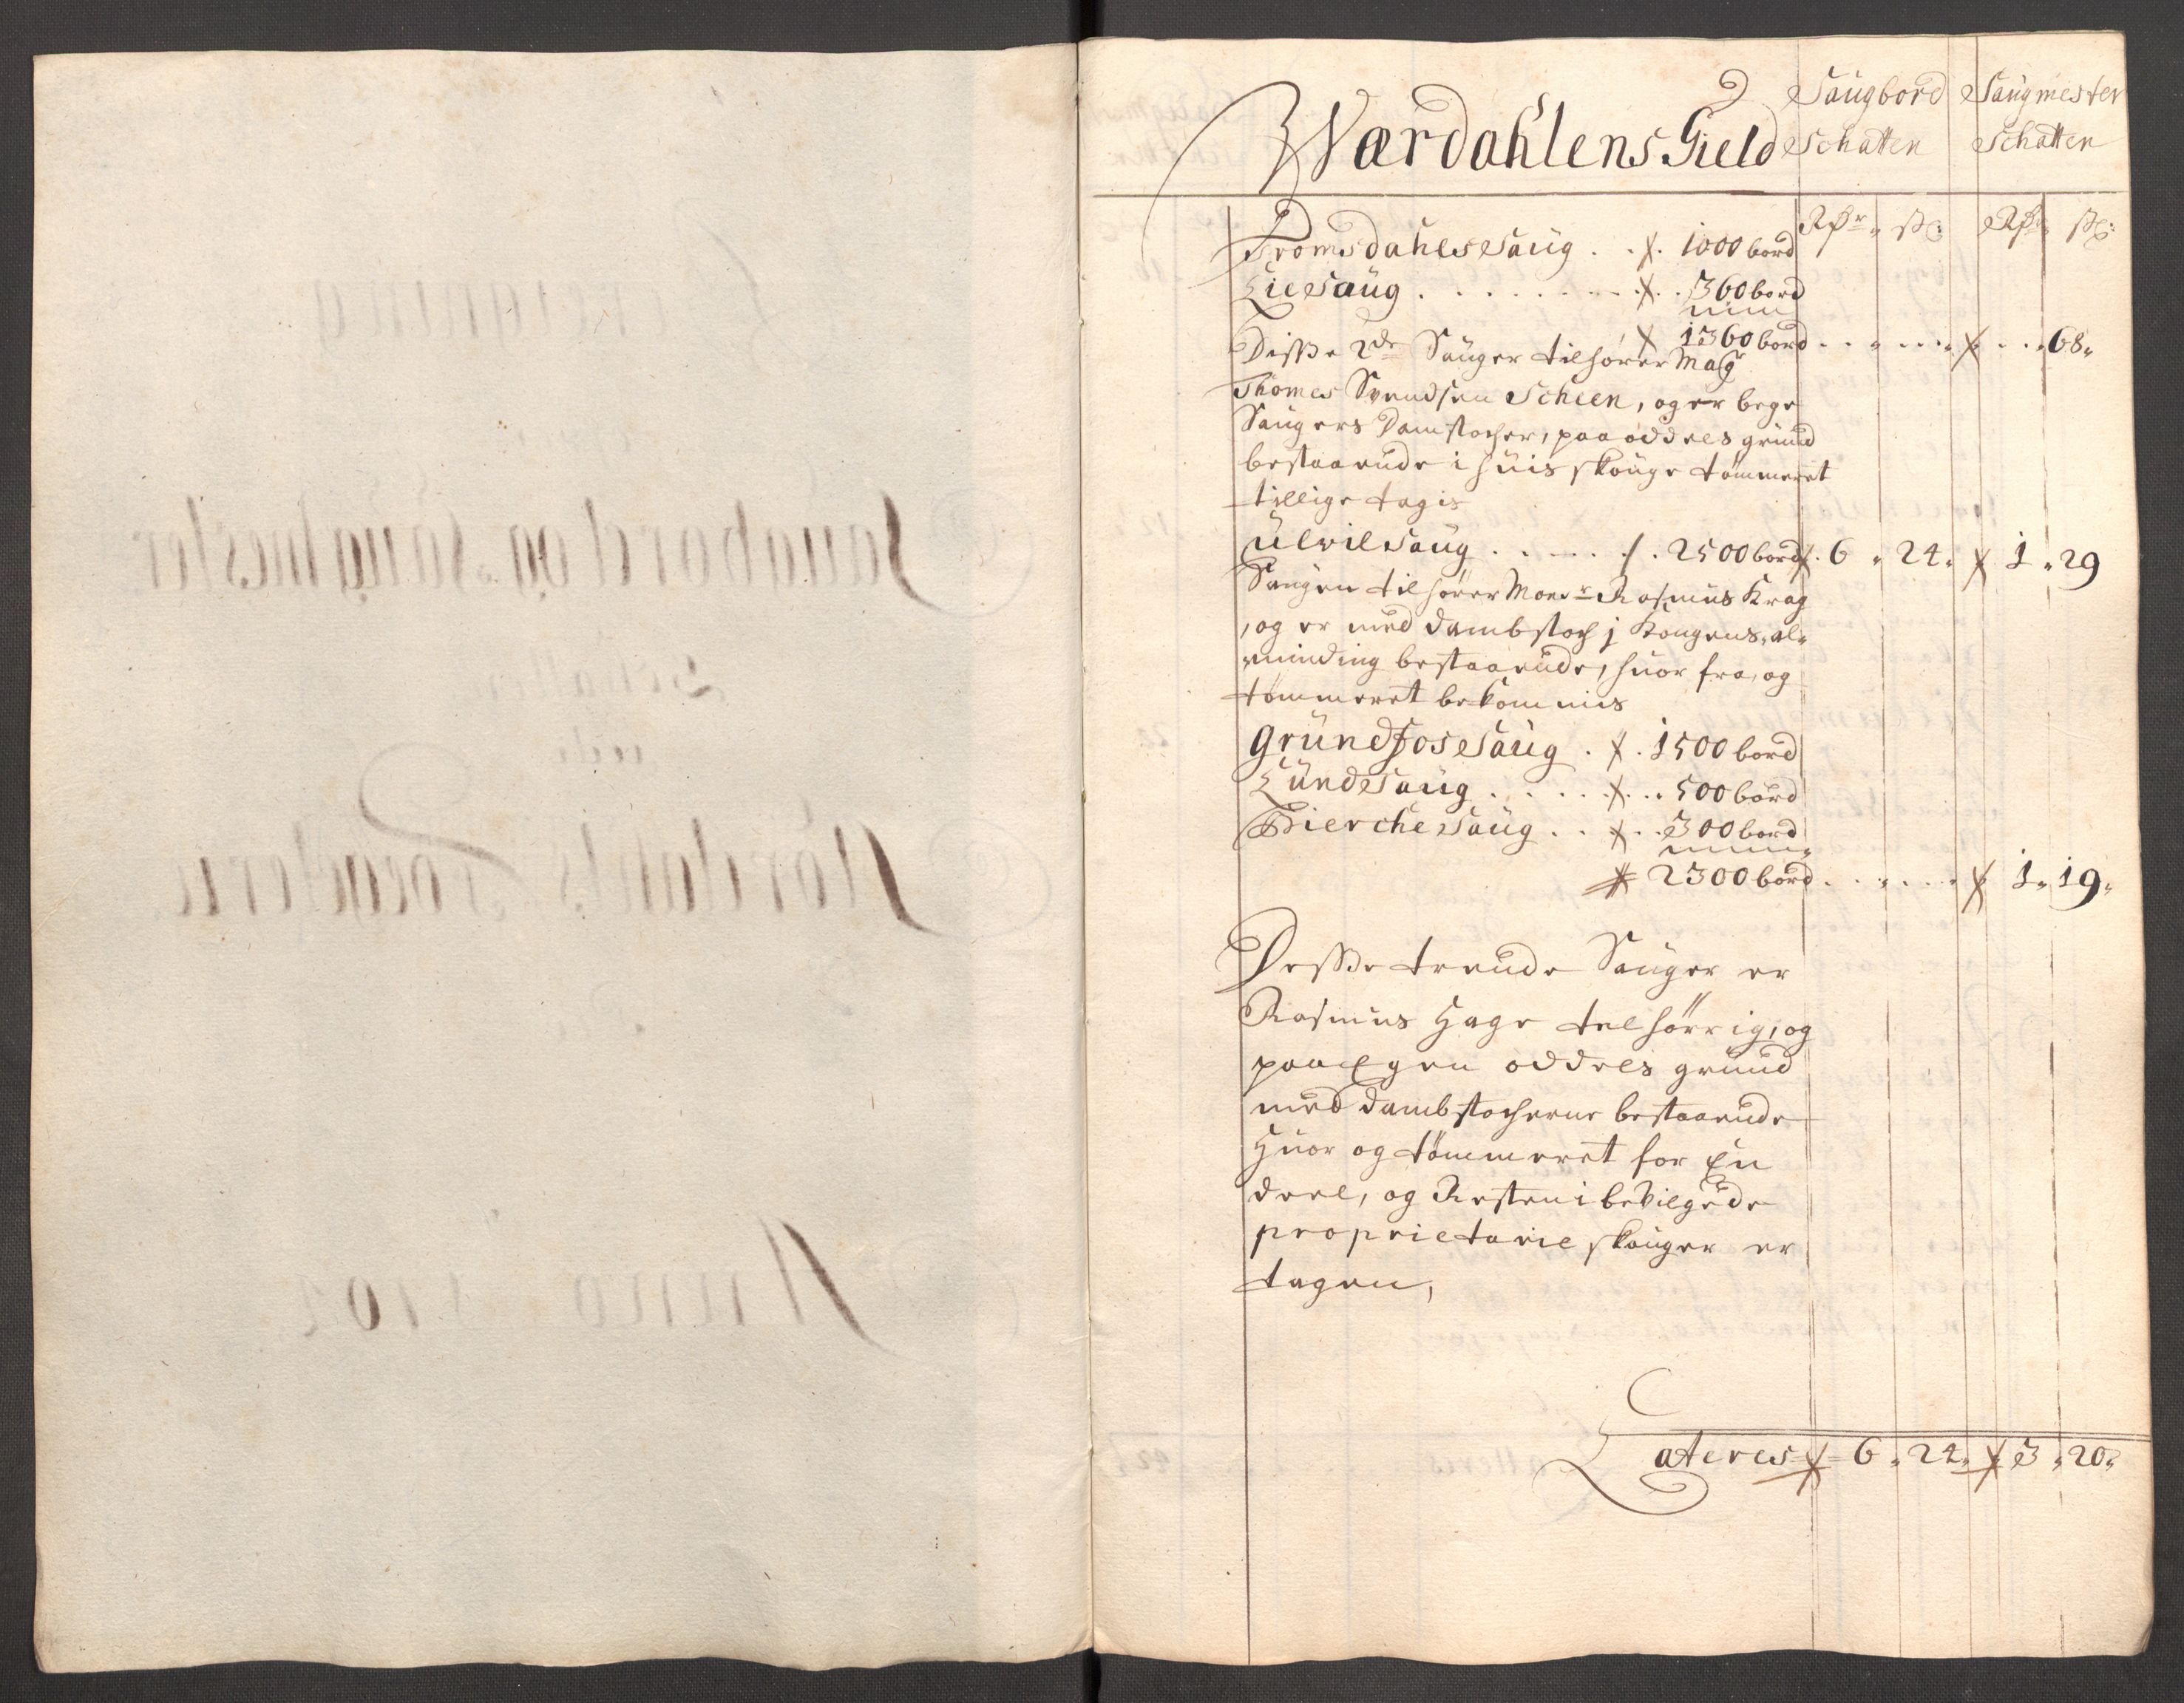 Saugbord Saugmester
Wærdahlens Gield Schatten Schatten
Rdr ß Rdr ß
Tromsdahls Saug . . 1000 bord
Lie Saug . . . . . . . . . 360 bord
1360 bord . . . . . . . . . 68
Disse 2de Sauger tilhører Mag
Thomes Svendsen Scheen, og er bege
Saugers Damstocher, paa oddels grund
bestaaende i huis skouge tømmeret
tillige tagis
Ulvil Saug . . . . . . 2500 bord . 6 " 24 " 1 " 29
Saugen tilhører Monsr Rasmus Krag
, og er med dambstoch j Kongens, al-
minding bestaaende, huor fra, og
tømmeret bekommis
Grundfos Saug . . 1500 bord
Lunde Saug . . . . . . 500 bord
Bierche Saug . . . . 300 bord
2300 bord . . . . . . 1 " 19 "
Desse trende Sauger er
Rasmus Hage tilhørrig, og
paa Egen oddels grund
med dambstocherne bestaaende
Huor og tømmeret for En
deel, og Resten i bevilgede
proprietarie skouger er
tagen,
Lateres 6 " 24 " 3 " 20 "